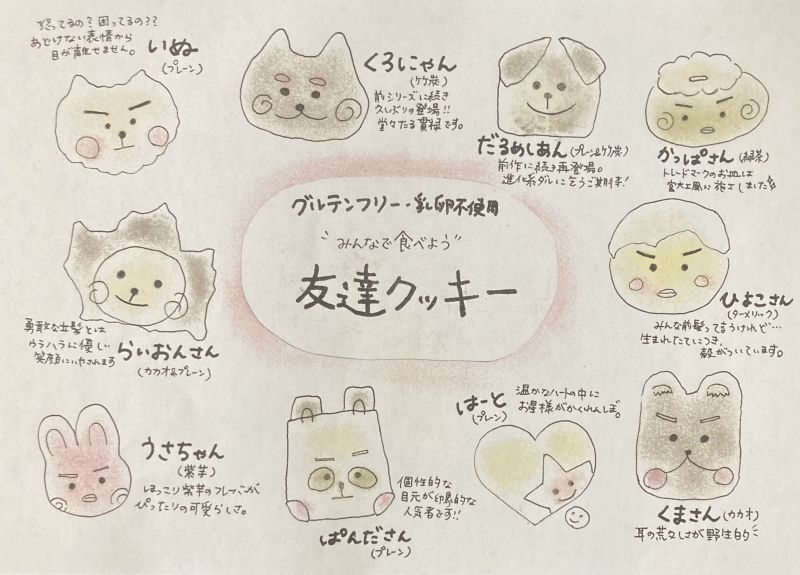 怒ってるの？困ってるの？？
あどけない表情から
目が離せません。
いぬ
(プレーン)
くろにゃん
(竹炭)
前シリーズに続き
久しぶりの登場!!
堂々たる貫禄です。
だるめしあん(プレーン&竹炭)
前作に続き再登場。
進化系ダルにこうご期待!
かっぱさん(緑茶)
トレードマークのお皿は
宮大工風に施しました
グルテンフリー・乳卵不使用
"みんなで食べよう"
友達クッキー
らいおんさん
(カカオ&プレーン)
勇敢な立髪とは
ウラハラに優しい
笑顔にいやされます
ひよこさん
(ターメリック)
みんな前髪って言うけれど…
生まれたてにつき、
殻がついています。
うさちゃん
(紫芋)
ほっこり紫芋のフレーバーが
ぴったりの可愛らしさ。
ぱんださん
(プレーン)
個性的な
目元が印象的な
人気者です!!
はーと
(プレーン)
温かなハートの中に
お星様がかくれんぼ。
くまさん(カカオ)
耳の荒々しさが野生的